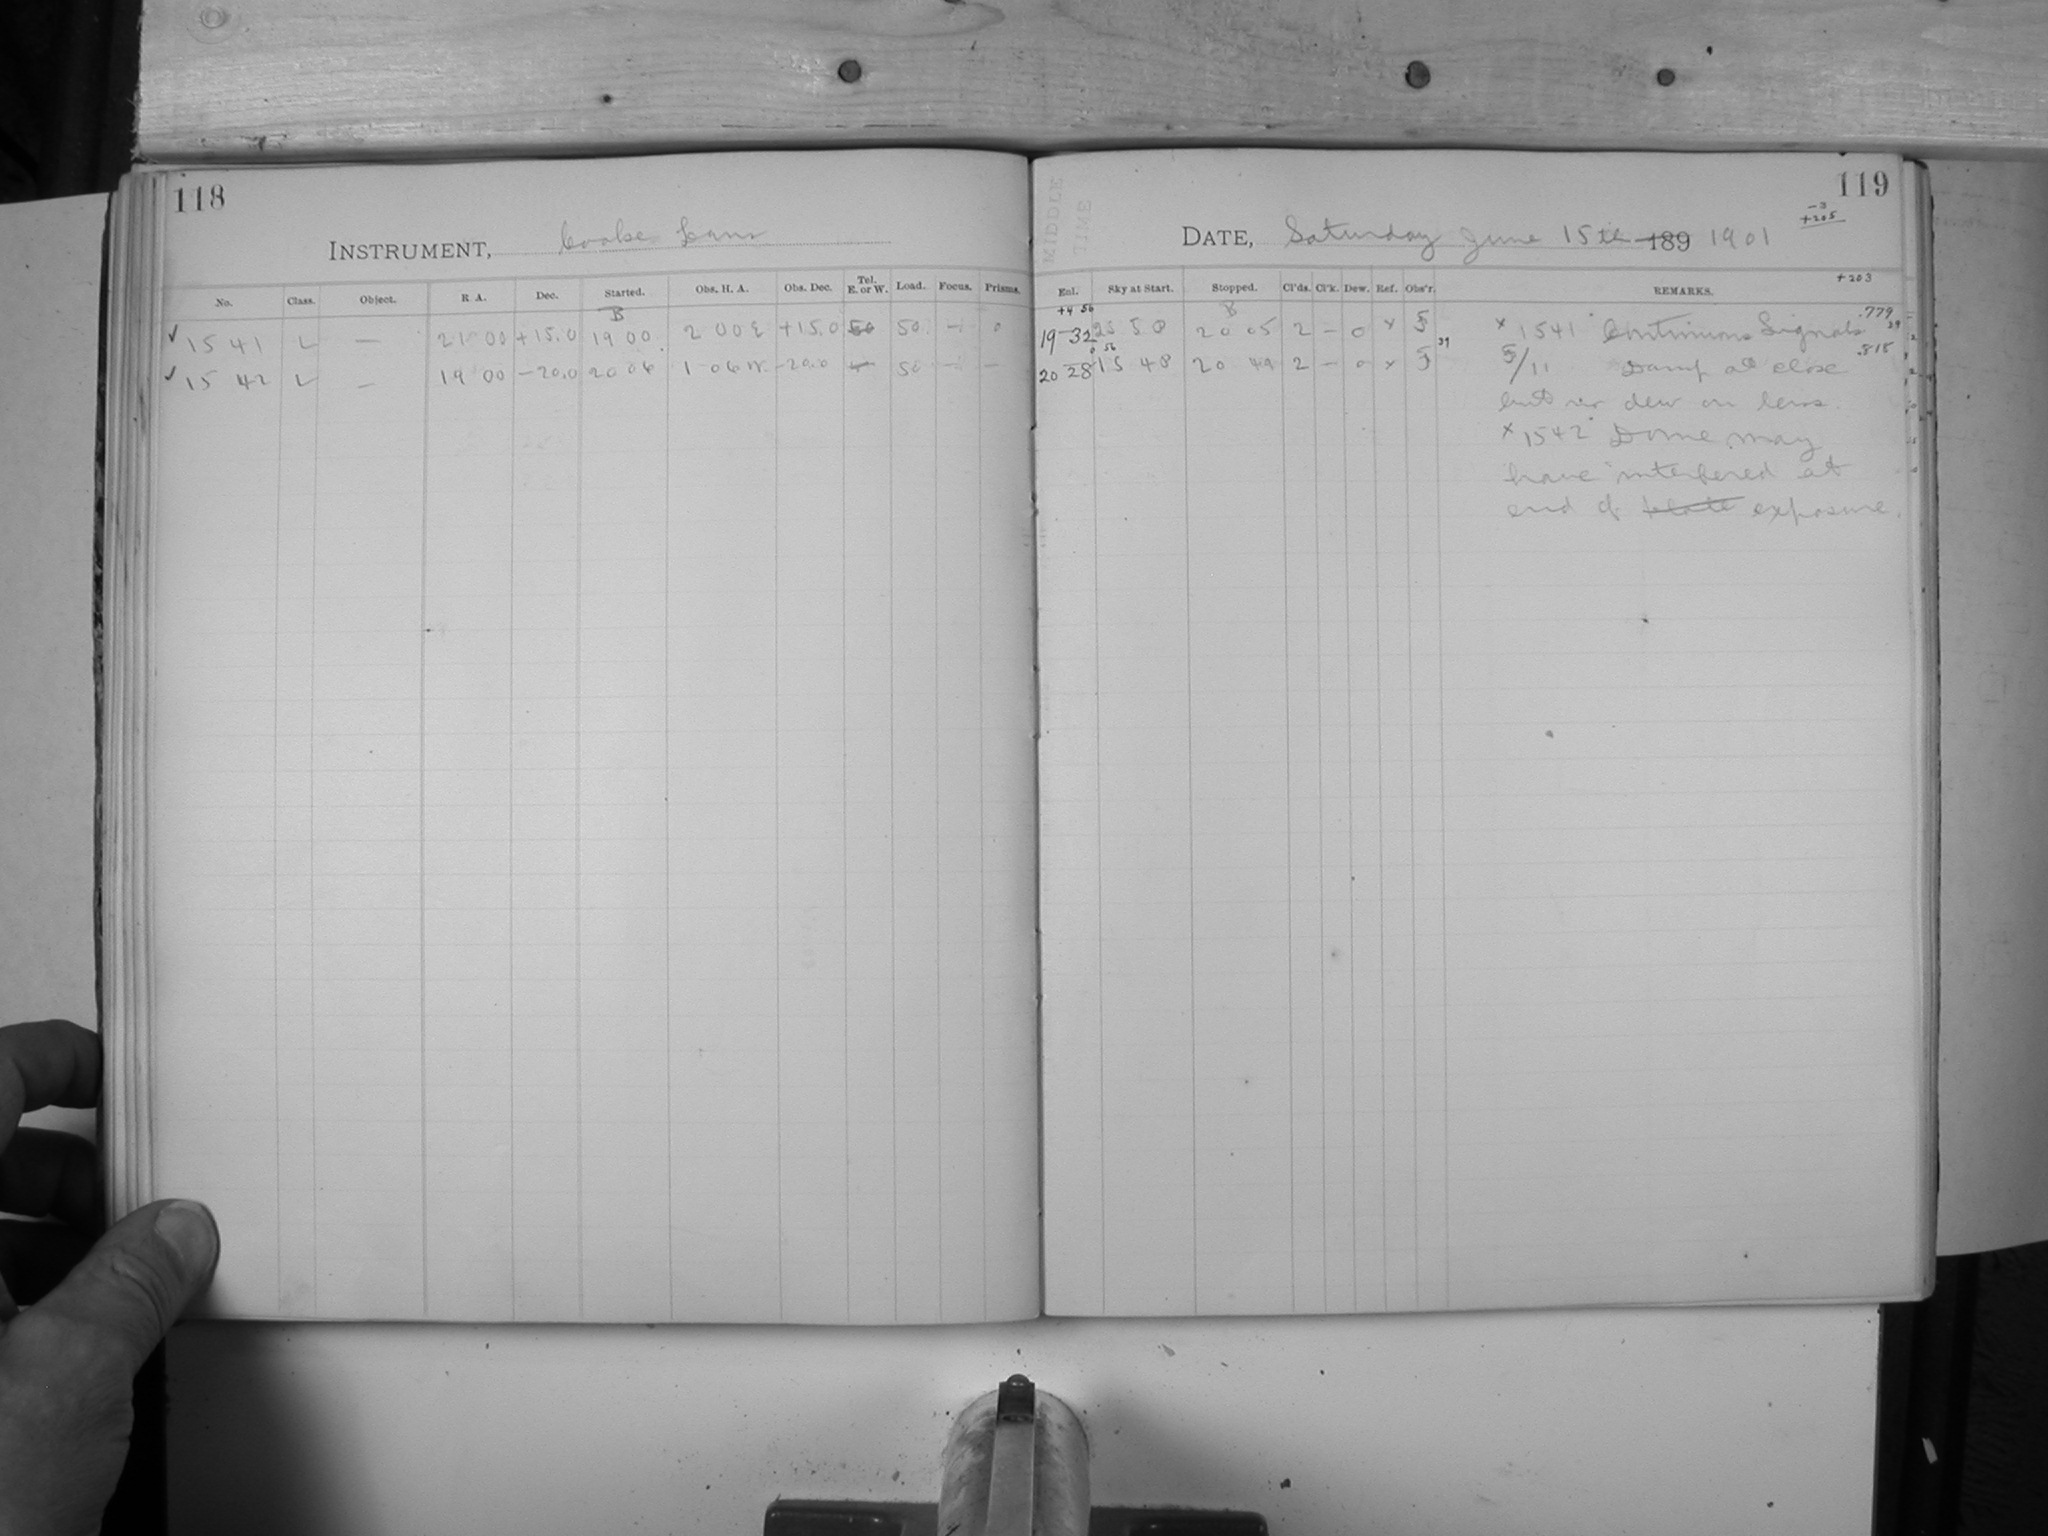 118
INSTRUMENT, Cooke Lens
No. Class. Object. R A. Dec. Started. Obs. H. A. Obs. Dec. Tel. E. or W. Load. Focus. Prisms.
B
✓ 1541 L — 21 00 +15.0 19 00 2 00 E +15.0 50 50 — 0
✓ 1542 L — 19 00 -20.0 20 06 1 06 W. -20.0 50 — —
119
-3
+205
DATE, Saturday June 15th 189 1901
+203
MIDDLE TIME
Enl. Sky at Start. Stopped. Cl'ds. Cl'k. Dew. Ref. Obs'r. REMARKS.
+4 56 B
19-32 23 50 20 05 2 — 0 x 5 x 1541 Continuous Signals .779
56 39
20 28 15 48 20 49 2 — 0 x 5 5/11 Damp at close .818
but no dew on lens.
x 1542 Dome may
have interfered at
end of plate exposure.